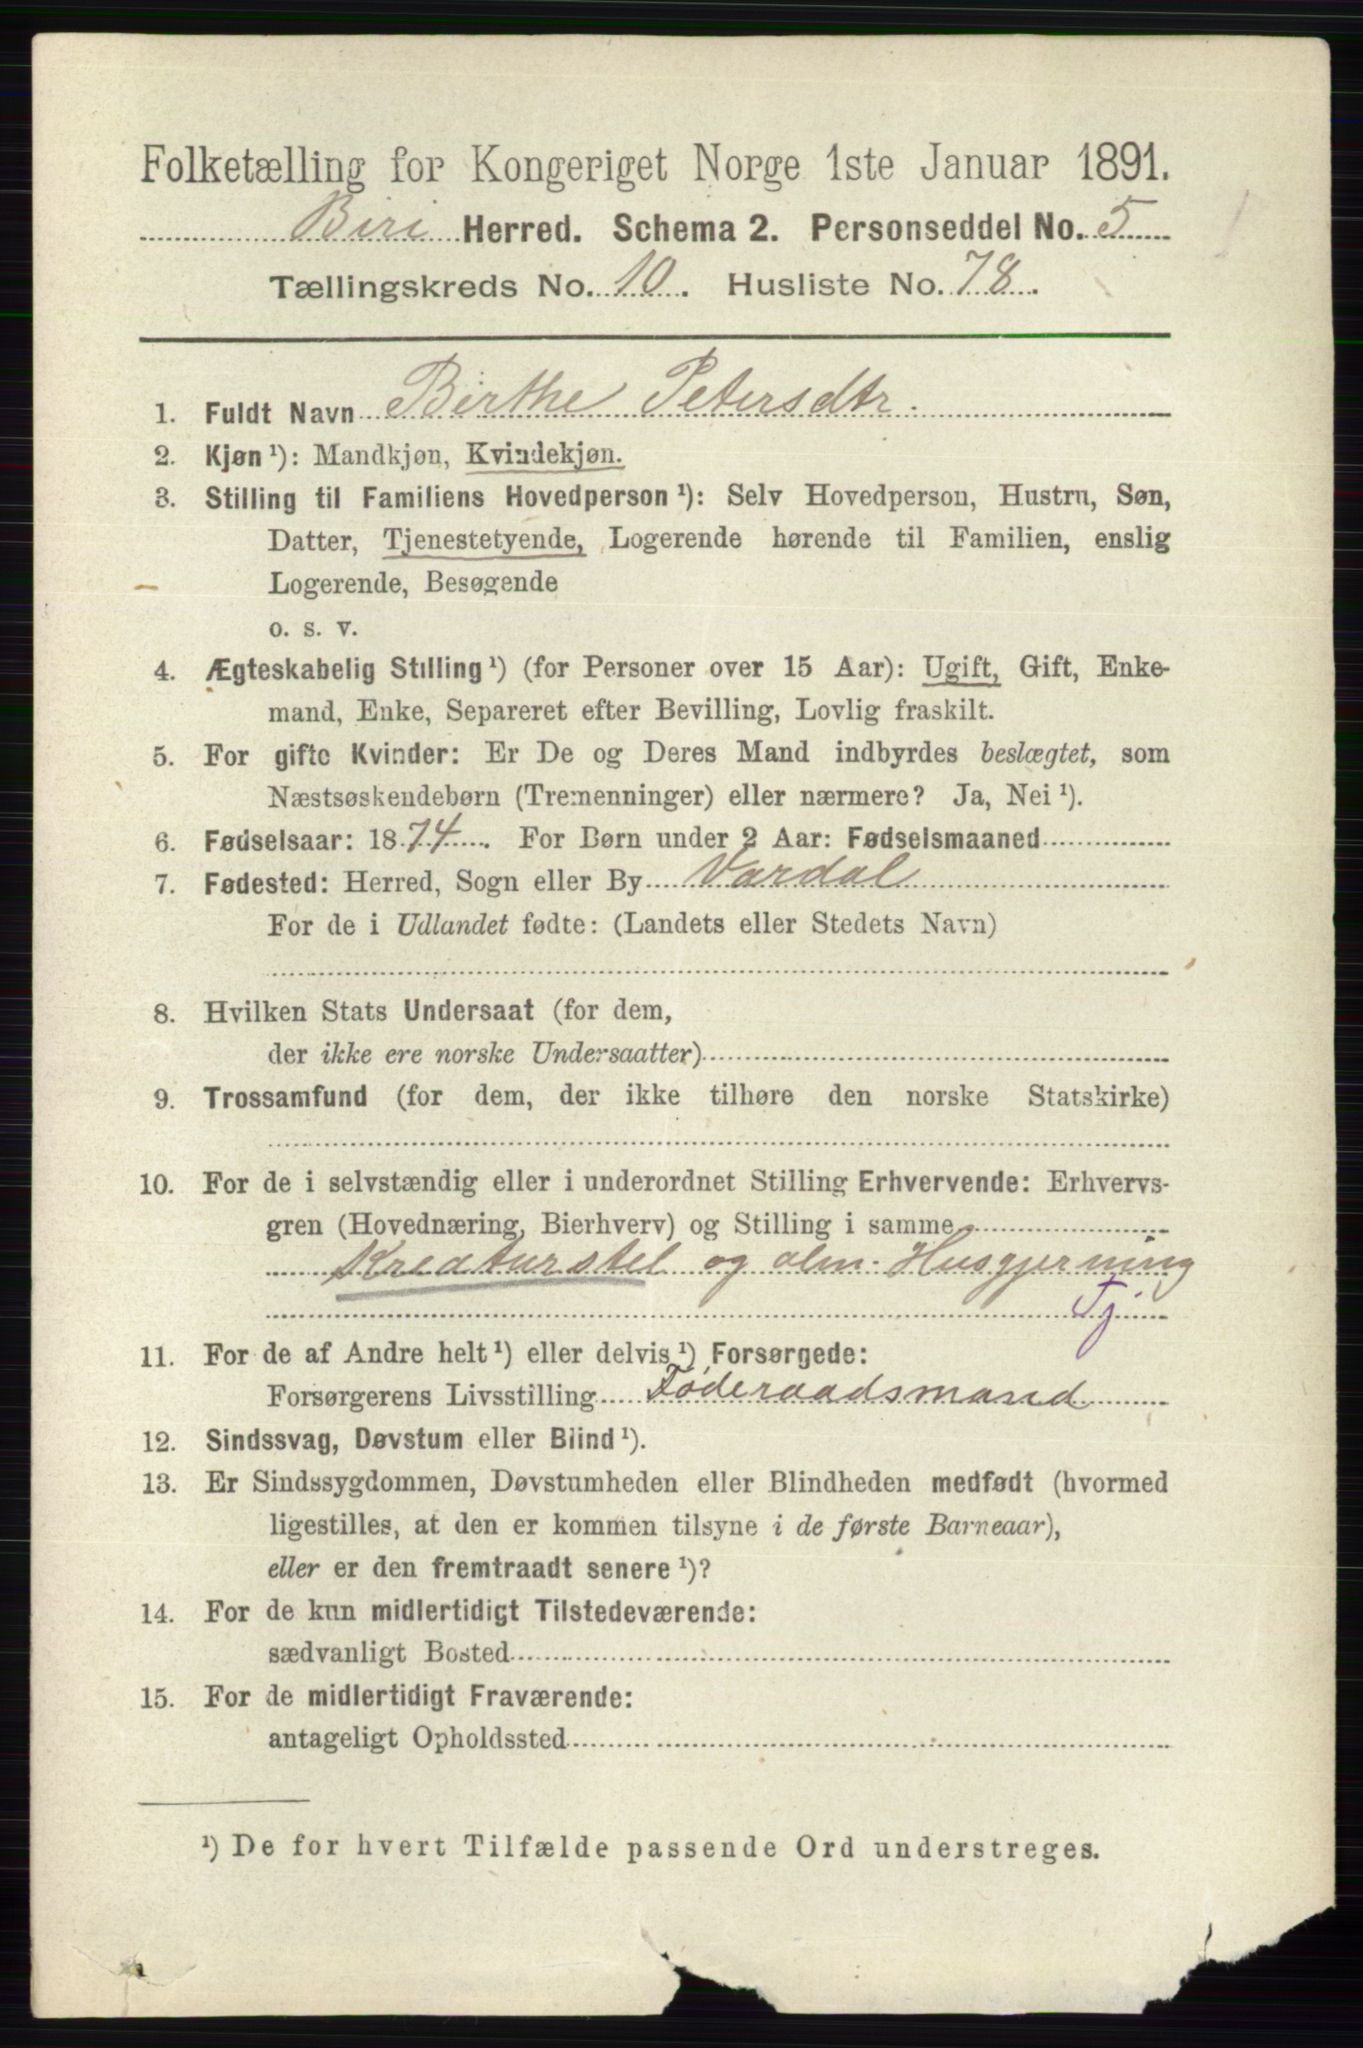 Folketælling for Kongeriget Norge 1ste Januar 1891.
Biri Herred. Schema 2. Personseddel No. 5
Tællingskreds No. 10. Husliste No. 78.
1. Fuldt Navn Birthe Petersdtr.
2. Kjøn¹): Mandkjøn, Kvindekjøn.
3. Stilling til Familiens Hovedperson¹): Selv Hovedperson, Hustru, Søn,
Datter, Tjenestetyende, Logerende hørende til Familien, enslig
Logerende, Besøgende
o. s. v.
4. Ægteskabelig Stilling¹) (for Personer over 15 Aar): Ugift, Gift, Enke-
mand, Enke, Separeret efter Bevilling, Lovlig fraskilt.
5. For gifte Kvinder: Er De og Deres Mand indbyrdes beslægtet, som
Næstsøskendebørn (Tremenninger) eller nærmere? Ja, Nei¹).
6. Fødselsaar: 1874. For Børn under 2 Aar: Fødselsmaaned
7. Fødested: Herred, Sogn eller By Vardal
For de i Udlandet fødte: (Landets eller Stedets Navn)
8. Hvilken Stats Undersaat (for dem,
der ikke ere norske Undersaatter)
9. Trossamfund (for dem, der ikke tilhøre den norske Statskirke)
10. For de i selvstændig eller i underordnet Stilling Erhvervende: Erhvervs-
gren (Hovednæring, Bierhverv) og Stilling i samme
Kreaturstel og alm. Husgjerning
Tj
11. For de af Andre helt¹) eller delvis¹) Forsørgede:
Forsørgerens Livsstilling Føderaadsmand
12. Sindssvag, Døvstum eller Blind¹).
13. Er Sindssygdommen, Døvstumheden eller Blindheden medfødt (hvormed
ligestilles, at den er kommen tilsyne i de første Barneaar),
eller er den fremtraadt senere¹)?
14. For de kun midlertidigt Tilstedeværende:
sædvanligt Bosted
15. For de midlertidigt Fraværende:
antageligt Opholdssted
¹) De for hvert Tilfælde passende Ord understreges.